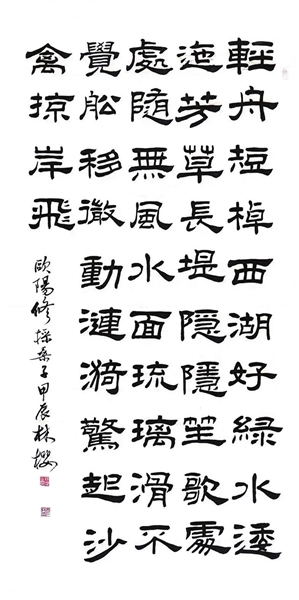 輕舟短棹西湖好綠水逶
迤芳草長堤隱隱笙歌處
處隨無風水面琉璃滑不
覺舩移微動漣漪驚起沙
禽掠岸飛
歐陽修採桑子甲辰林櫻